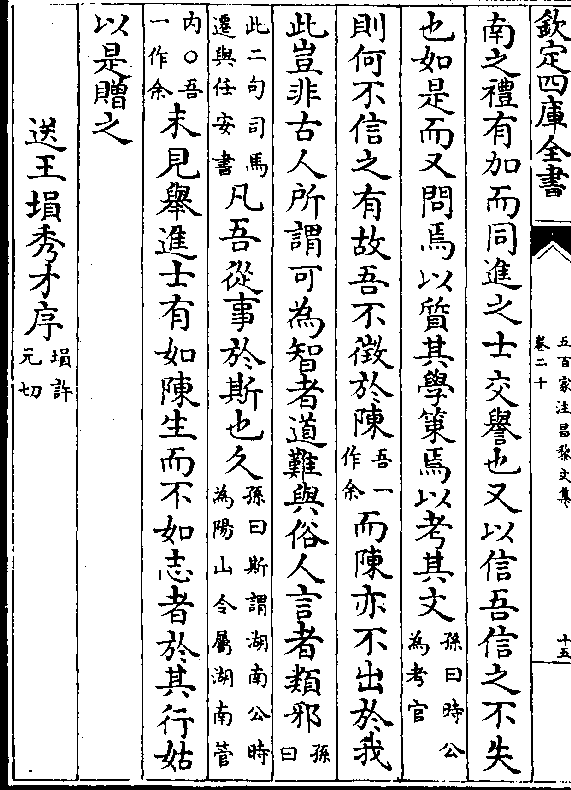 欽定四庫全書
五百家注昌黎文集
卷二十
十五
南之禮有加而同進之士交譽也又以信吾信之不失
也如是而又問焉以質其學策焉以考其文孫曰時公為考官
則何不信之有故吾不徵於陳吾一作余而陳亦不出於我
此豈非古人所謂可為智者道難與俗人言者類邪孫曰
此二句司馬遷與任安書凡吾從事於斯也久孫曰斯謂湖南公時為陽山令屬湖南管
内○吾一作余未見舉進士有如陳生而不如志者於其行姑
以是贈之
送王塤秀才序塤許元切